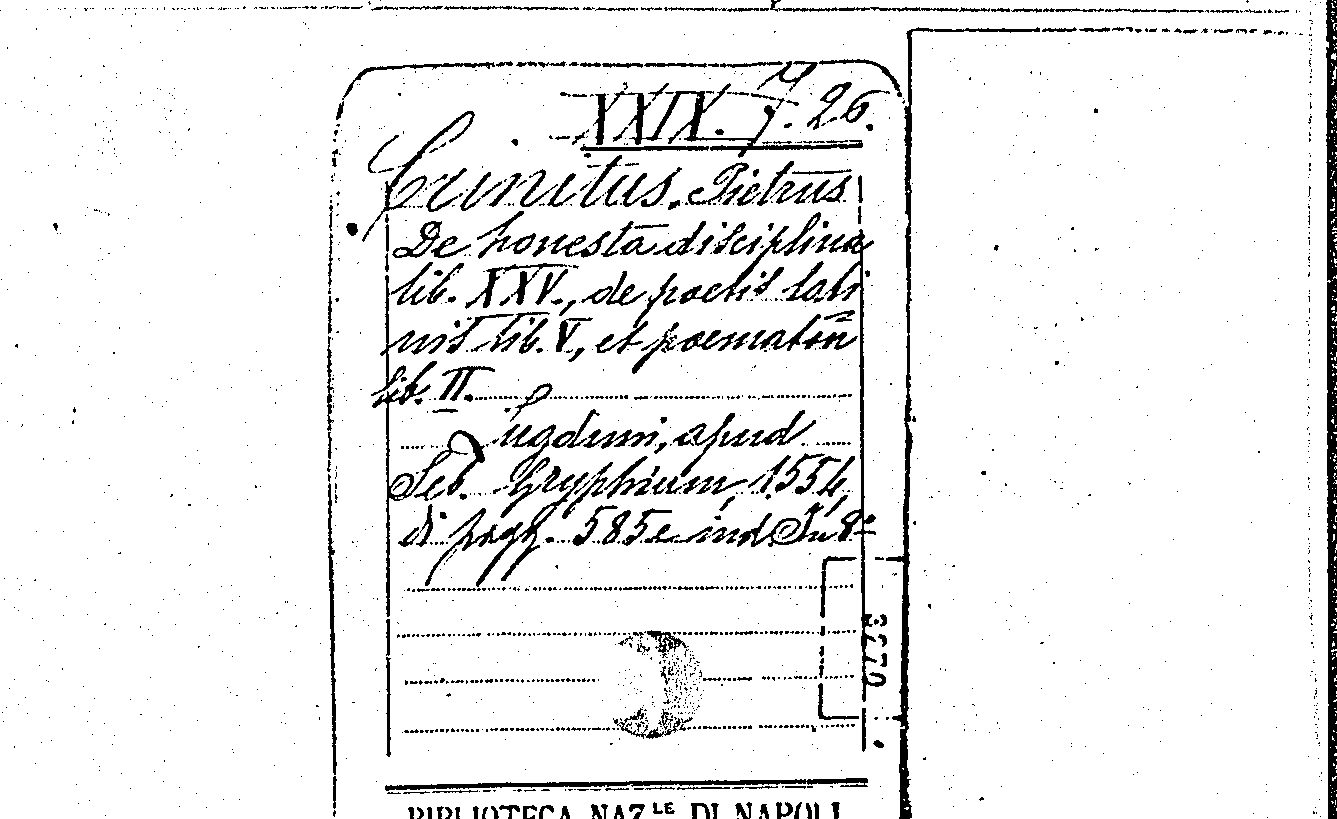 XXIX. 7. 26.
Crinitus, Pietrus
De honesta disciplina
lib. XXV., de poetis lati
nis lib. V, et poematōn
lib. II.
Lugduni, apud
Seb. Gryphium, 1554,
di pagg. 585 e ind. In 8º
3270
BIBLIOTECA NAZLE DI NAPOLI